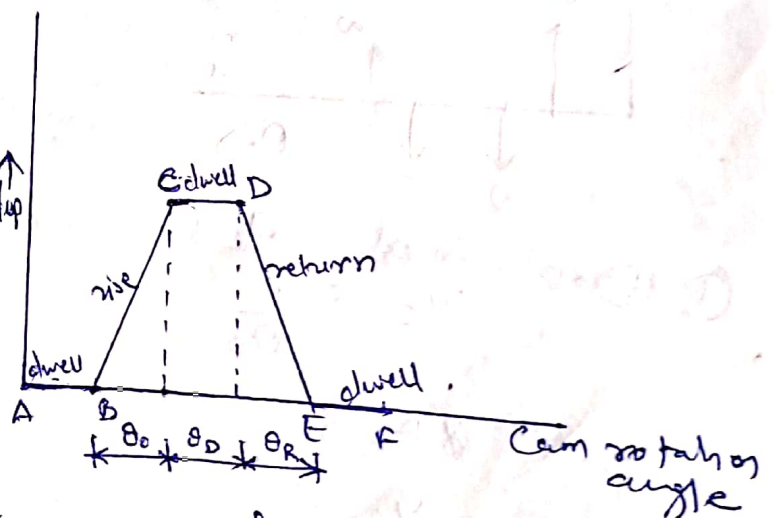 C dwell D
rise
return
dwell
dwell
A
B
E
F
θo
θD
θR
Cam rotation
angle